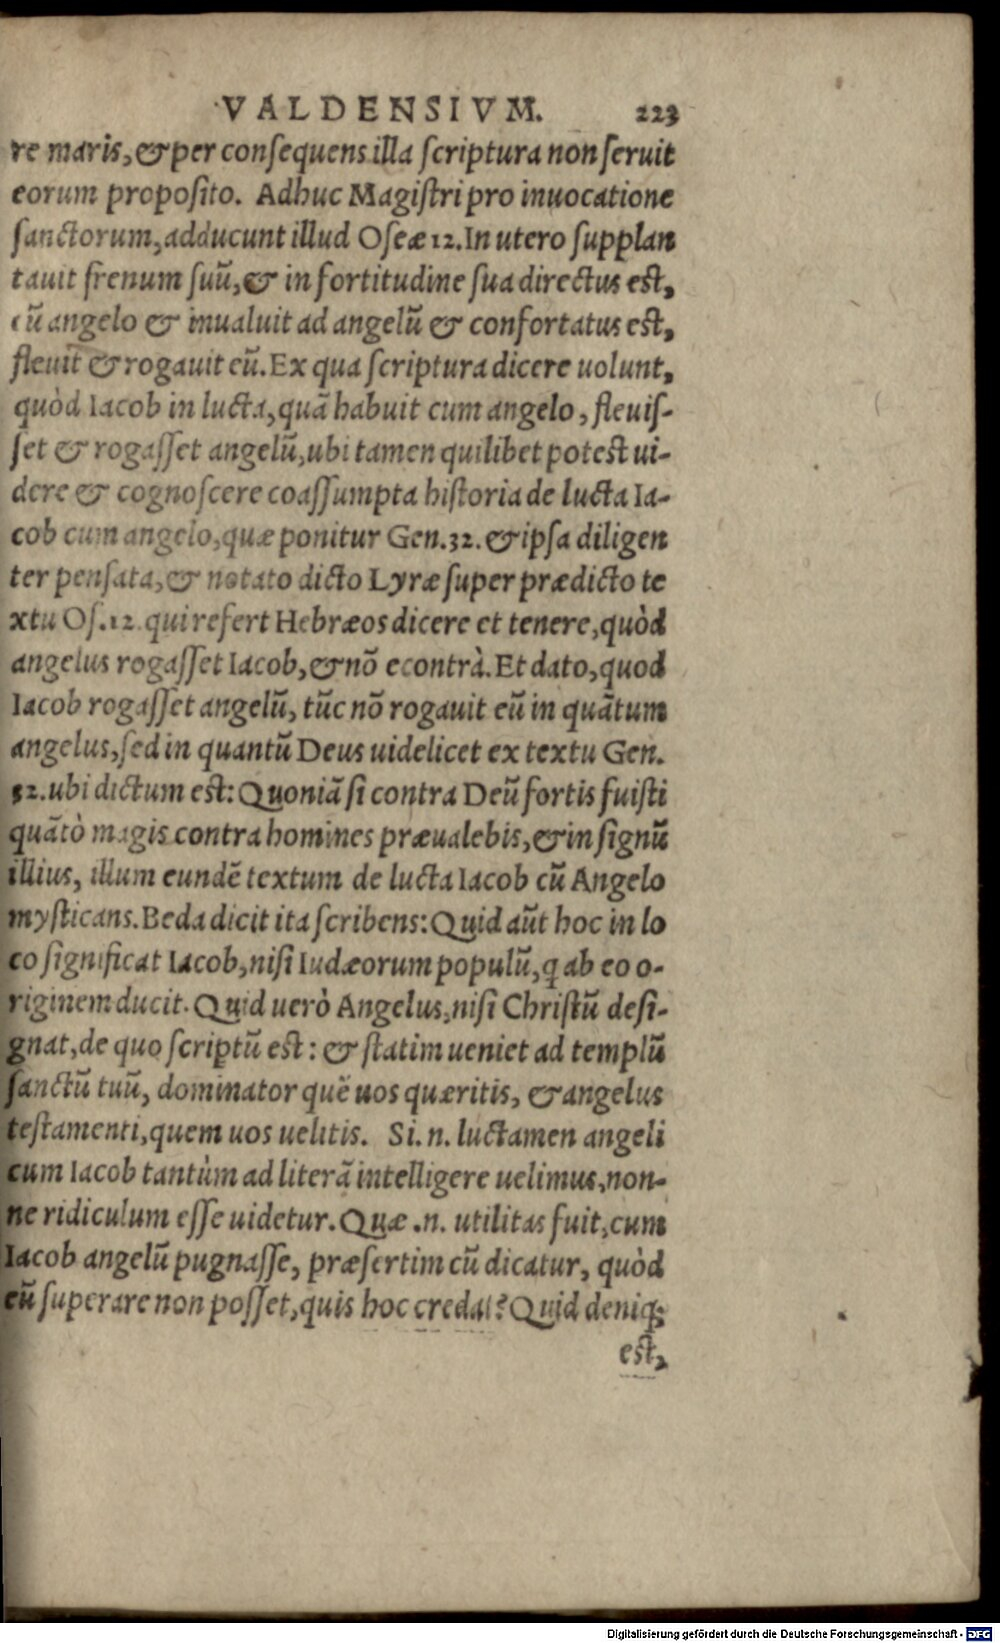 VALDENSIVM. 223
re maris, & per consequens illa scriptura non seruit
eorum proposito. Adhuc Magistri pro inuocatione
sanctorum, adducunt illud Oseæ 12. In utero supplan
tauit frenum suũ, & in fortitudine sua directus est,
cũ angelo & inualuit ad angelũ & confortatus est,
fleuit & rogauit eũ. Ex qua scriptura dicere uolunt,
quòd Iacob in lucta, quã habuit cum angelo, fleuis-
set & rogasset angelũ, ubi tamen quilibet potest ui-
dere & cognoscere coassumpta historia de lucta Ia-
cob cum angelo, quæ ponitur Gen. 32. & ipsa diligen
ter pensata, & notato dicto Lyræ super prædicto te
xtu Os. 12. qui refert Hebræos dicere et tenere, quòd
angelus rogasset Iacob, & nõ econtrà. Et dato, quod
Iacob rogasset angelũ, tũc nõ rogauit eũ in quãtum
angelus, sed in quantũ Deus uidelicet ex textu Gen.
32. ubi dictum est: Quoniã si contra Deũ fortis fuisti
quãtò magis contra homines præualebis, & in signũ
illius, illum eundẽ textum de lucta Iacob cũ Angelo
mysticans. Beda dicit ita scribens: Quid aũt hoc in lo
co significat Iacob, nisi Iudæorum populũ, q ab eo o-
riginem ducit. Quid uerò Angelus, nisi Christũ desi-
gnat, de quo scriptũ est: & statim ueniet ad templũ
sanctũ tuũ, dominator quẽ uos quæritis, & angelus
testamenti, quem uos uelitis. Si .n. luctamen angeli
cum Iacob tantùm ad literã intelligere uelimus, non-
ne ridiculum esse uidetur. Quæ .n. utilitas fuit, cum
Iacob angelũ pugnasse, præsertim cũ dicatur, quòd
eũ superare non posset, quis hoc credat? Quid deniq;
est,
Digitalisierung gefördert durch die Deutsche Forschungsgemeinschaft - DFG